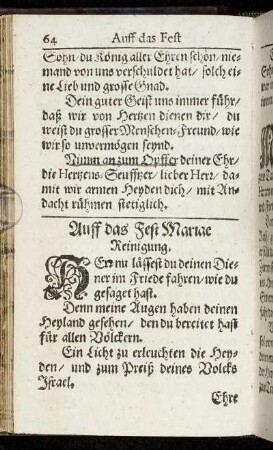 64 Auff das Fest
Sohn / du König aller Ehren schön / nie-
mand von uns verschuldet hat / solch ei-
ne Lieb und grosse Gnad.
Dein guter Geist uns immer führ /
daß wir von Hertzen dienen dir / du
weist du grosser Menschen-Freund / wie
wir so unvermögen seynd.
Nimm an zum Opffer deiner Ehr /
die Hertzens-Seuffzer / lieber Herr / da-
mit wir armen Heyden dich / mit An-
dacht rühmen stetiglich.
Auff das Fest Mariae
Reinigung.
HErr nu lässest du deinen Die-
ner im Friede fahren / wie du
gesaget hast.
Denn meine Augen haben deinen
Heyland gesehen / den du bereitet hast
für allen Völckern.
Ein Licht zu erleuchten die Hey-
den / und zum Preiß deines Volcks
Israel.
Ehre